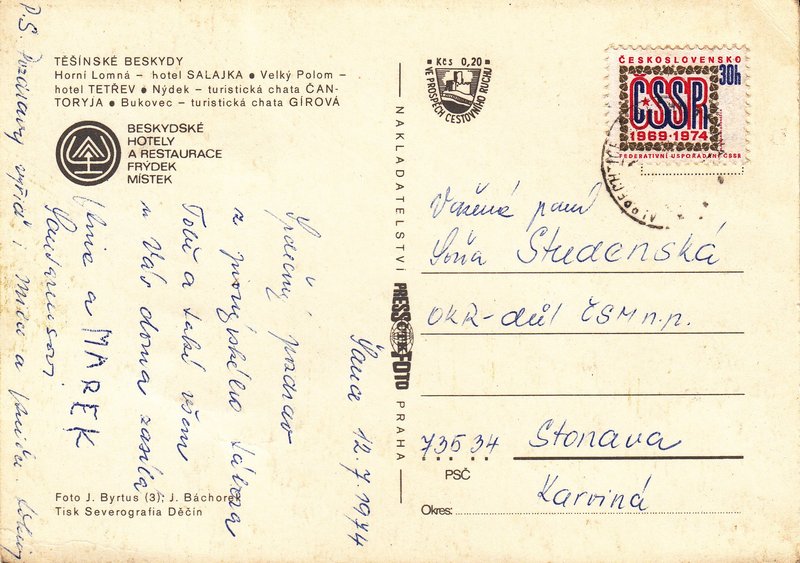 TĚŠÍNSKÉ BESKYDY
Horní Lomná – hotel SALAJKA ● Velký Polom –
hotel TETŘEV ● Nýdek – turistická chata ČAN-
TORYJA ● Bukovec – turistická chata GÍROVÁ
BESKYDSKÉ
HOTELY
A RESTAURACE
FRÝDEK
MÍSTEK
Sana 12.7.1974
Srdečný pozdrav
z pionýrského tábora
Tobě a také všem
u Vás doma zasílá
a MAREK
P.S. Pozdravy vyřiď i
Foto J. Byrtus (3), J. Báchorek
Tisk Severografia Děčín
NAKLADATELSTVÍ
PRESSFOTO
PRAHA
Kčs 0,20
VE PROSPĚCH CESTOVNÍHO RUCHU
ČESKOSLOVENSKO
30h
ČSSR
1969·1974
FEDERATIVNÍ USPOŘÁDÁNÍ ČSSR
Vážená paní
Soňa Studenská
OKR-důl ČSM n.p.
735 34 Stonava
PSČ
Karviná
Okres: